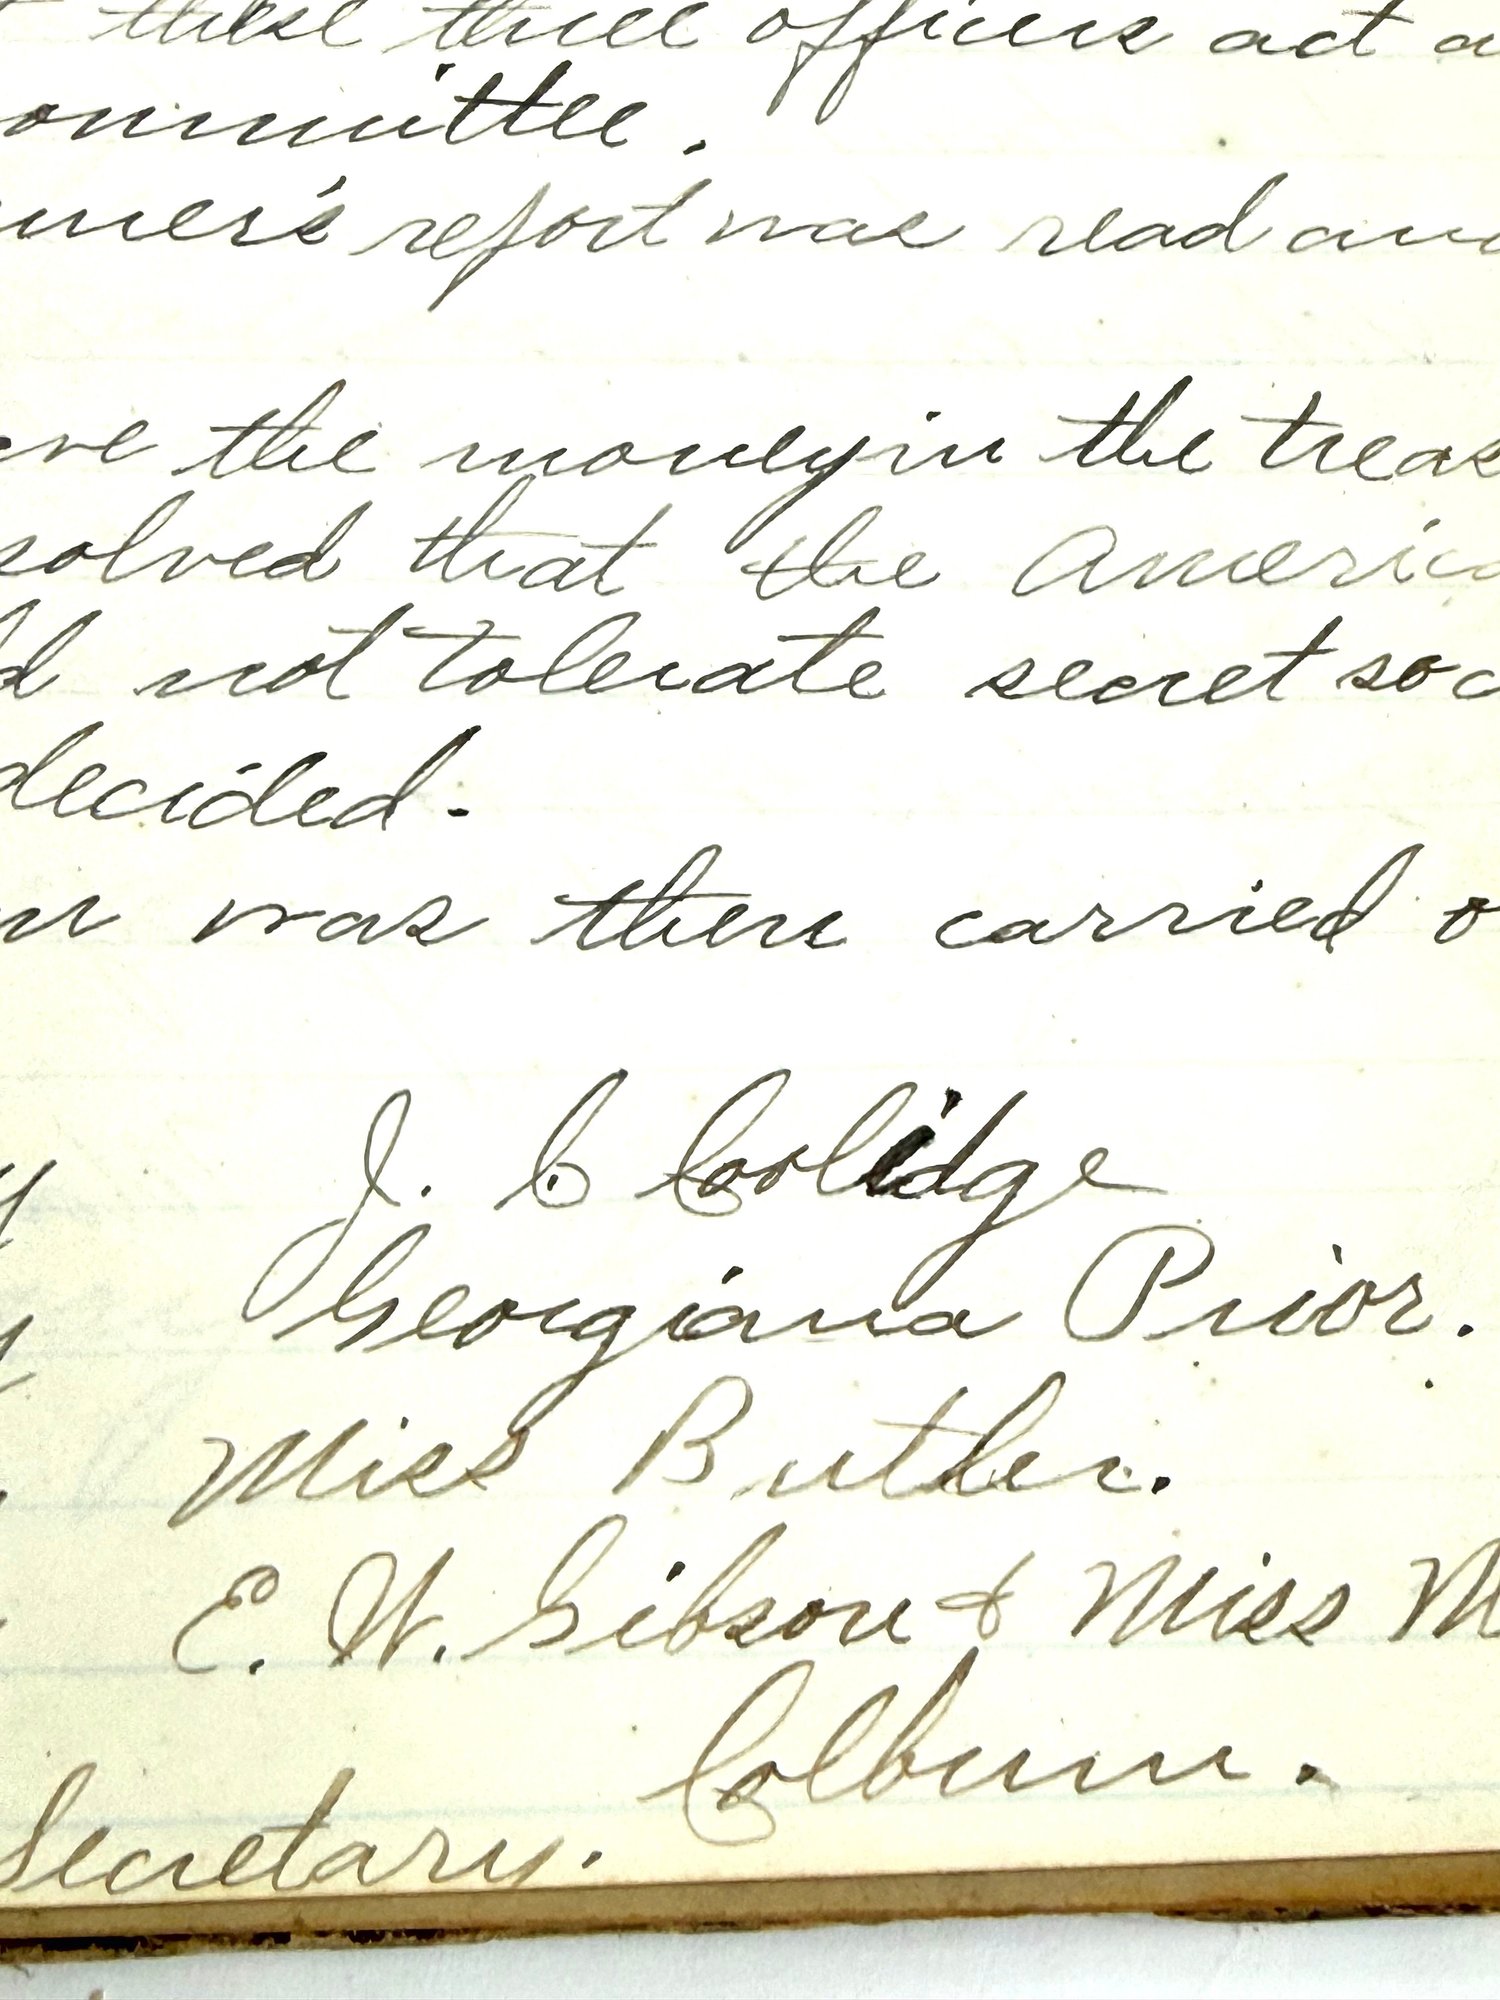 these three officers act a
ommittee.
mer's report was read and
ve the money in the treas
solved that the America
d not tolerate secret soc
decided.
n was then carried o
J. C Coolidge
Georgiana Prior.
Miss Butler.
E. W. Gibson & Miss M
Colburn.
Secretary.